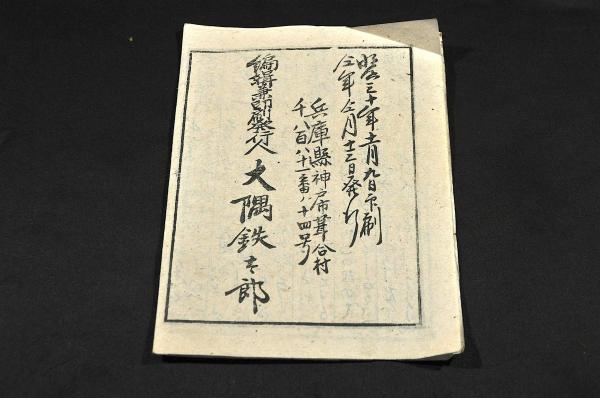 明治三十年十一月九日印刷
仝年仝月十二日発行
兵庫縣神戸市葺合村
千八百八十一番ノ十四号
編輯兼印刷発行人 大隅鉄太郎